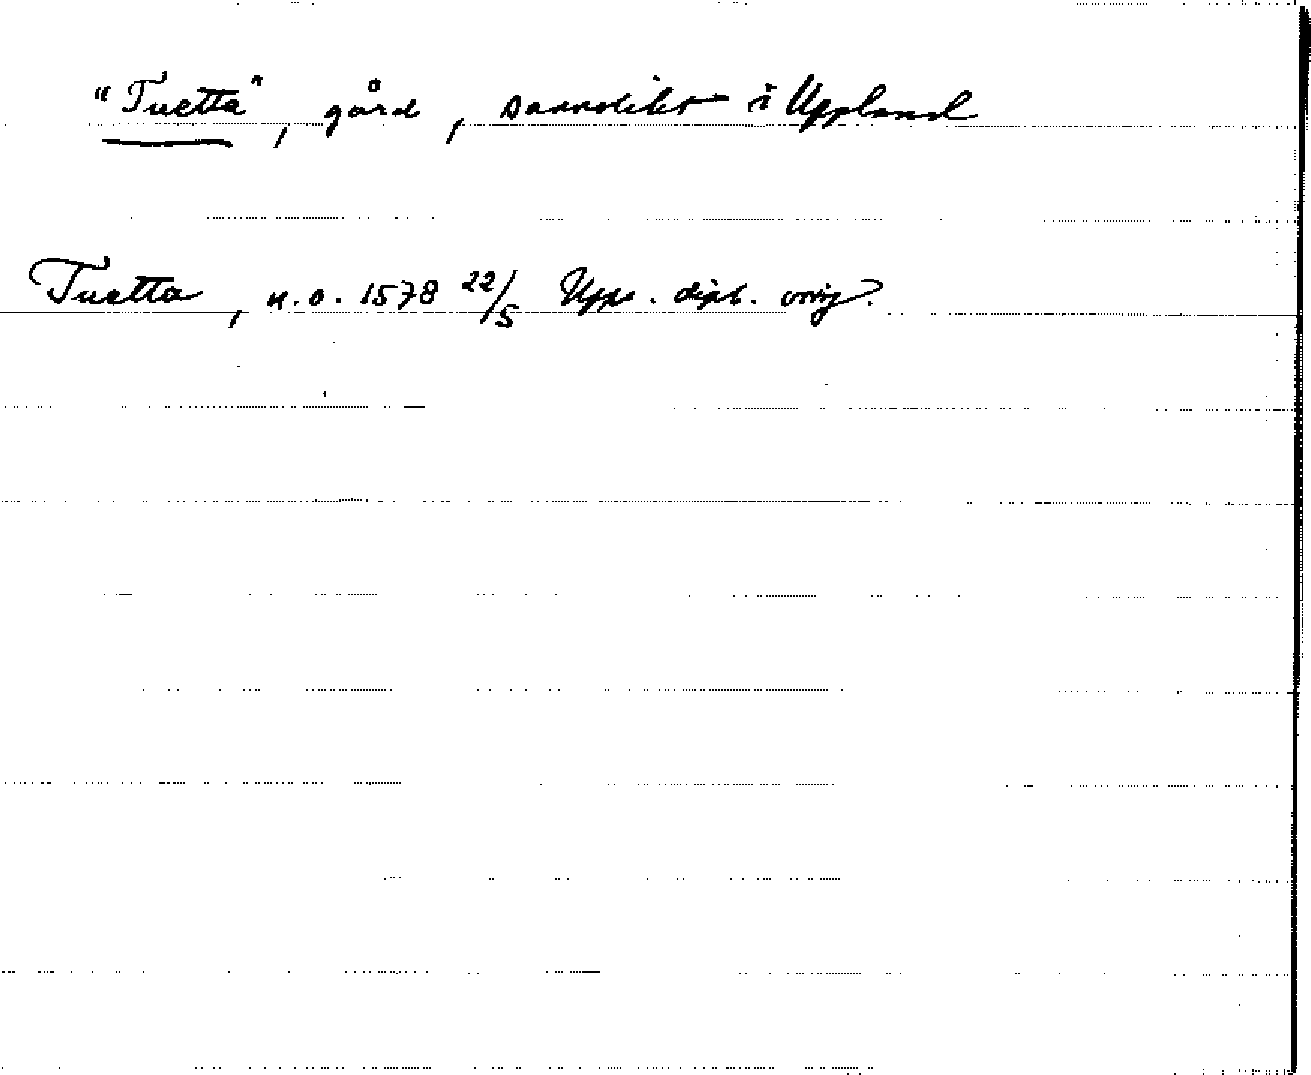 "Tuetta", gård, sannolikt i Uppland
Tuetta, n.o. 1578 22/5 Upps. dipl. orig.